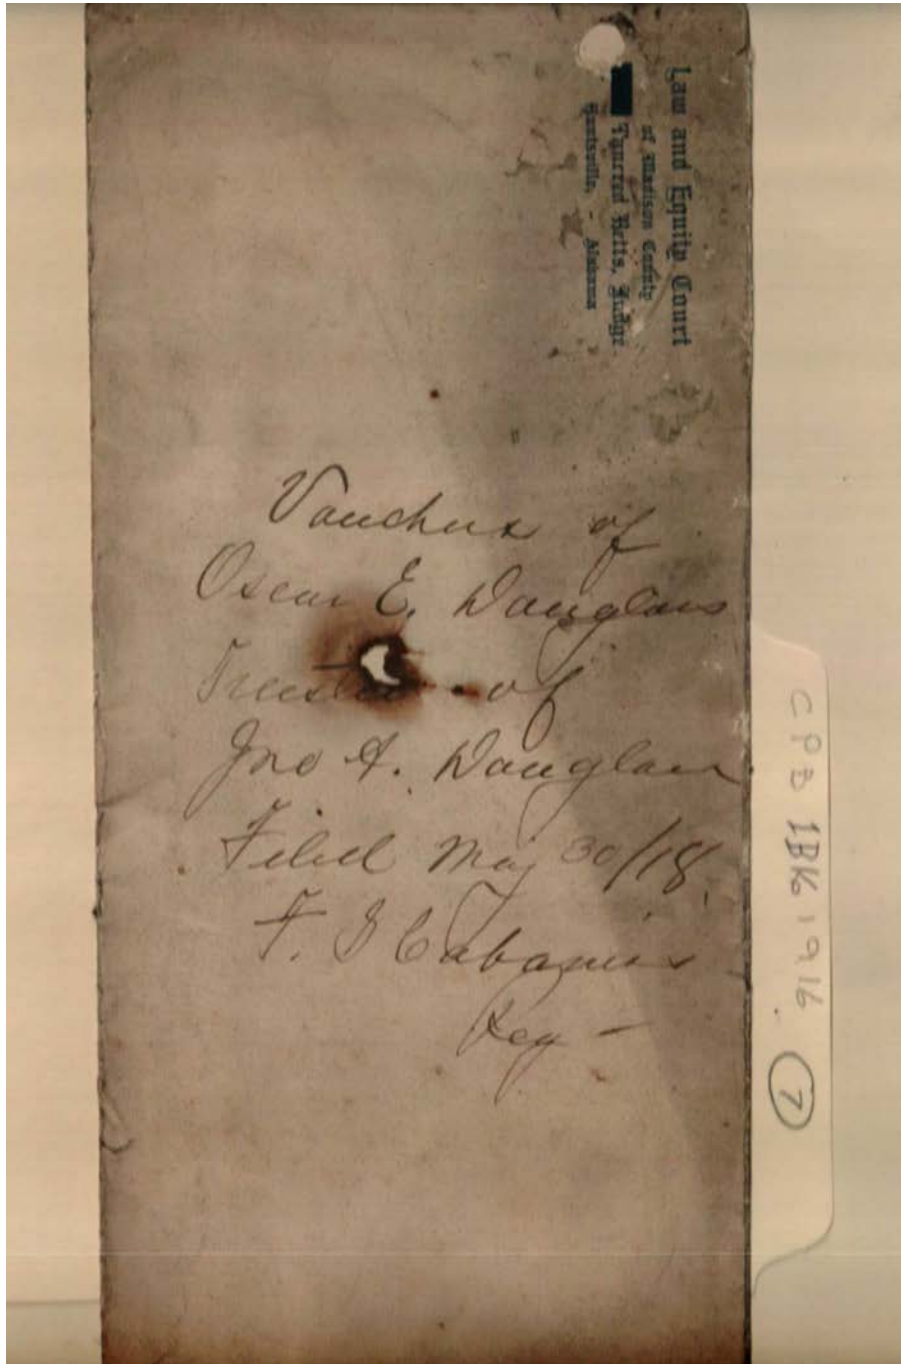 Law and Equity Court
of Madison County
Tancred Betts, Judge.
Huntsville, - Alabama
Vouchers of
Oscar E. Douglass
Trustee of
Jno A. Douglass
Filed May 30/18.
F. S Cabaniss
Reg -
CPB 1BK 1916 7